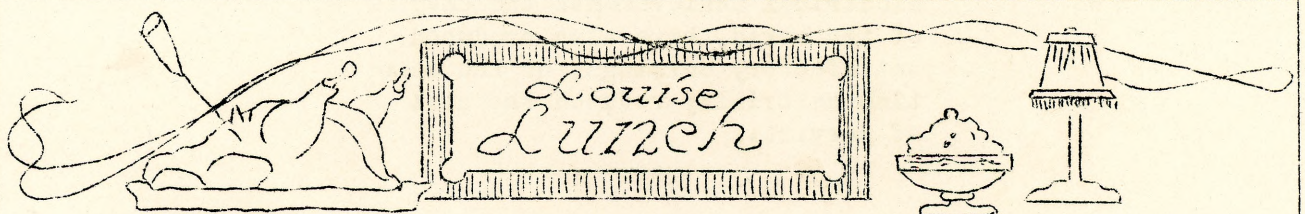 Louise
Lunch